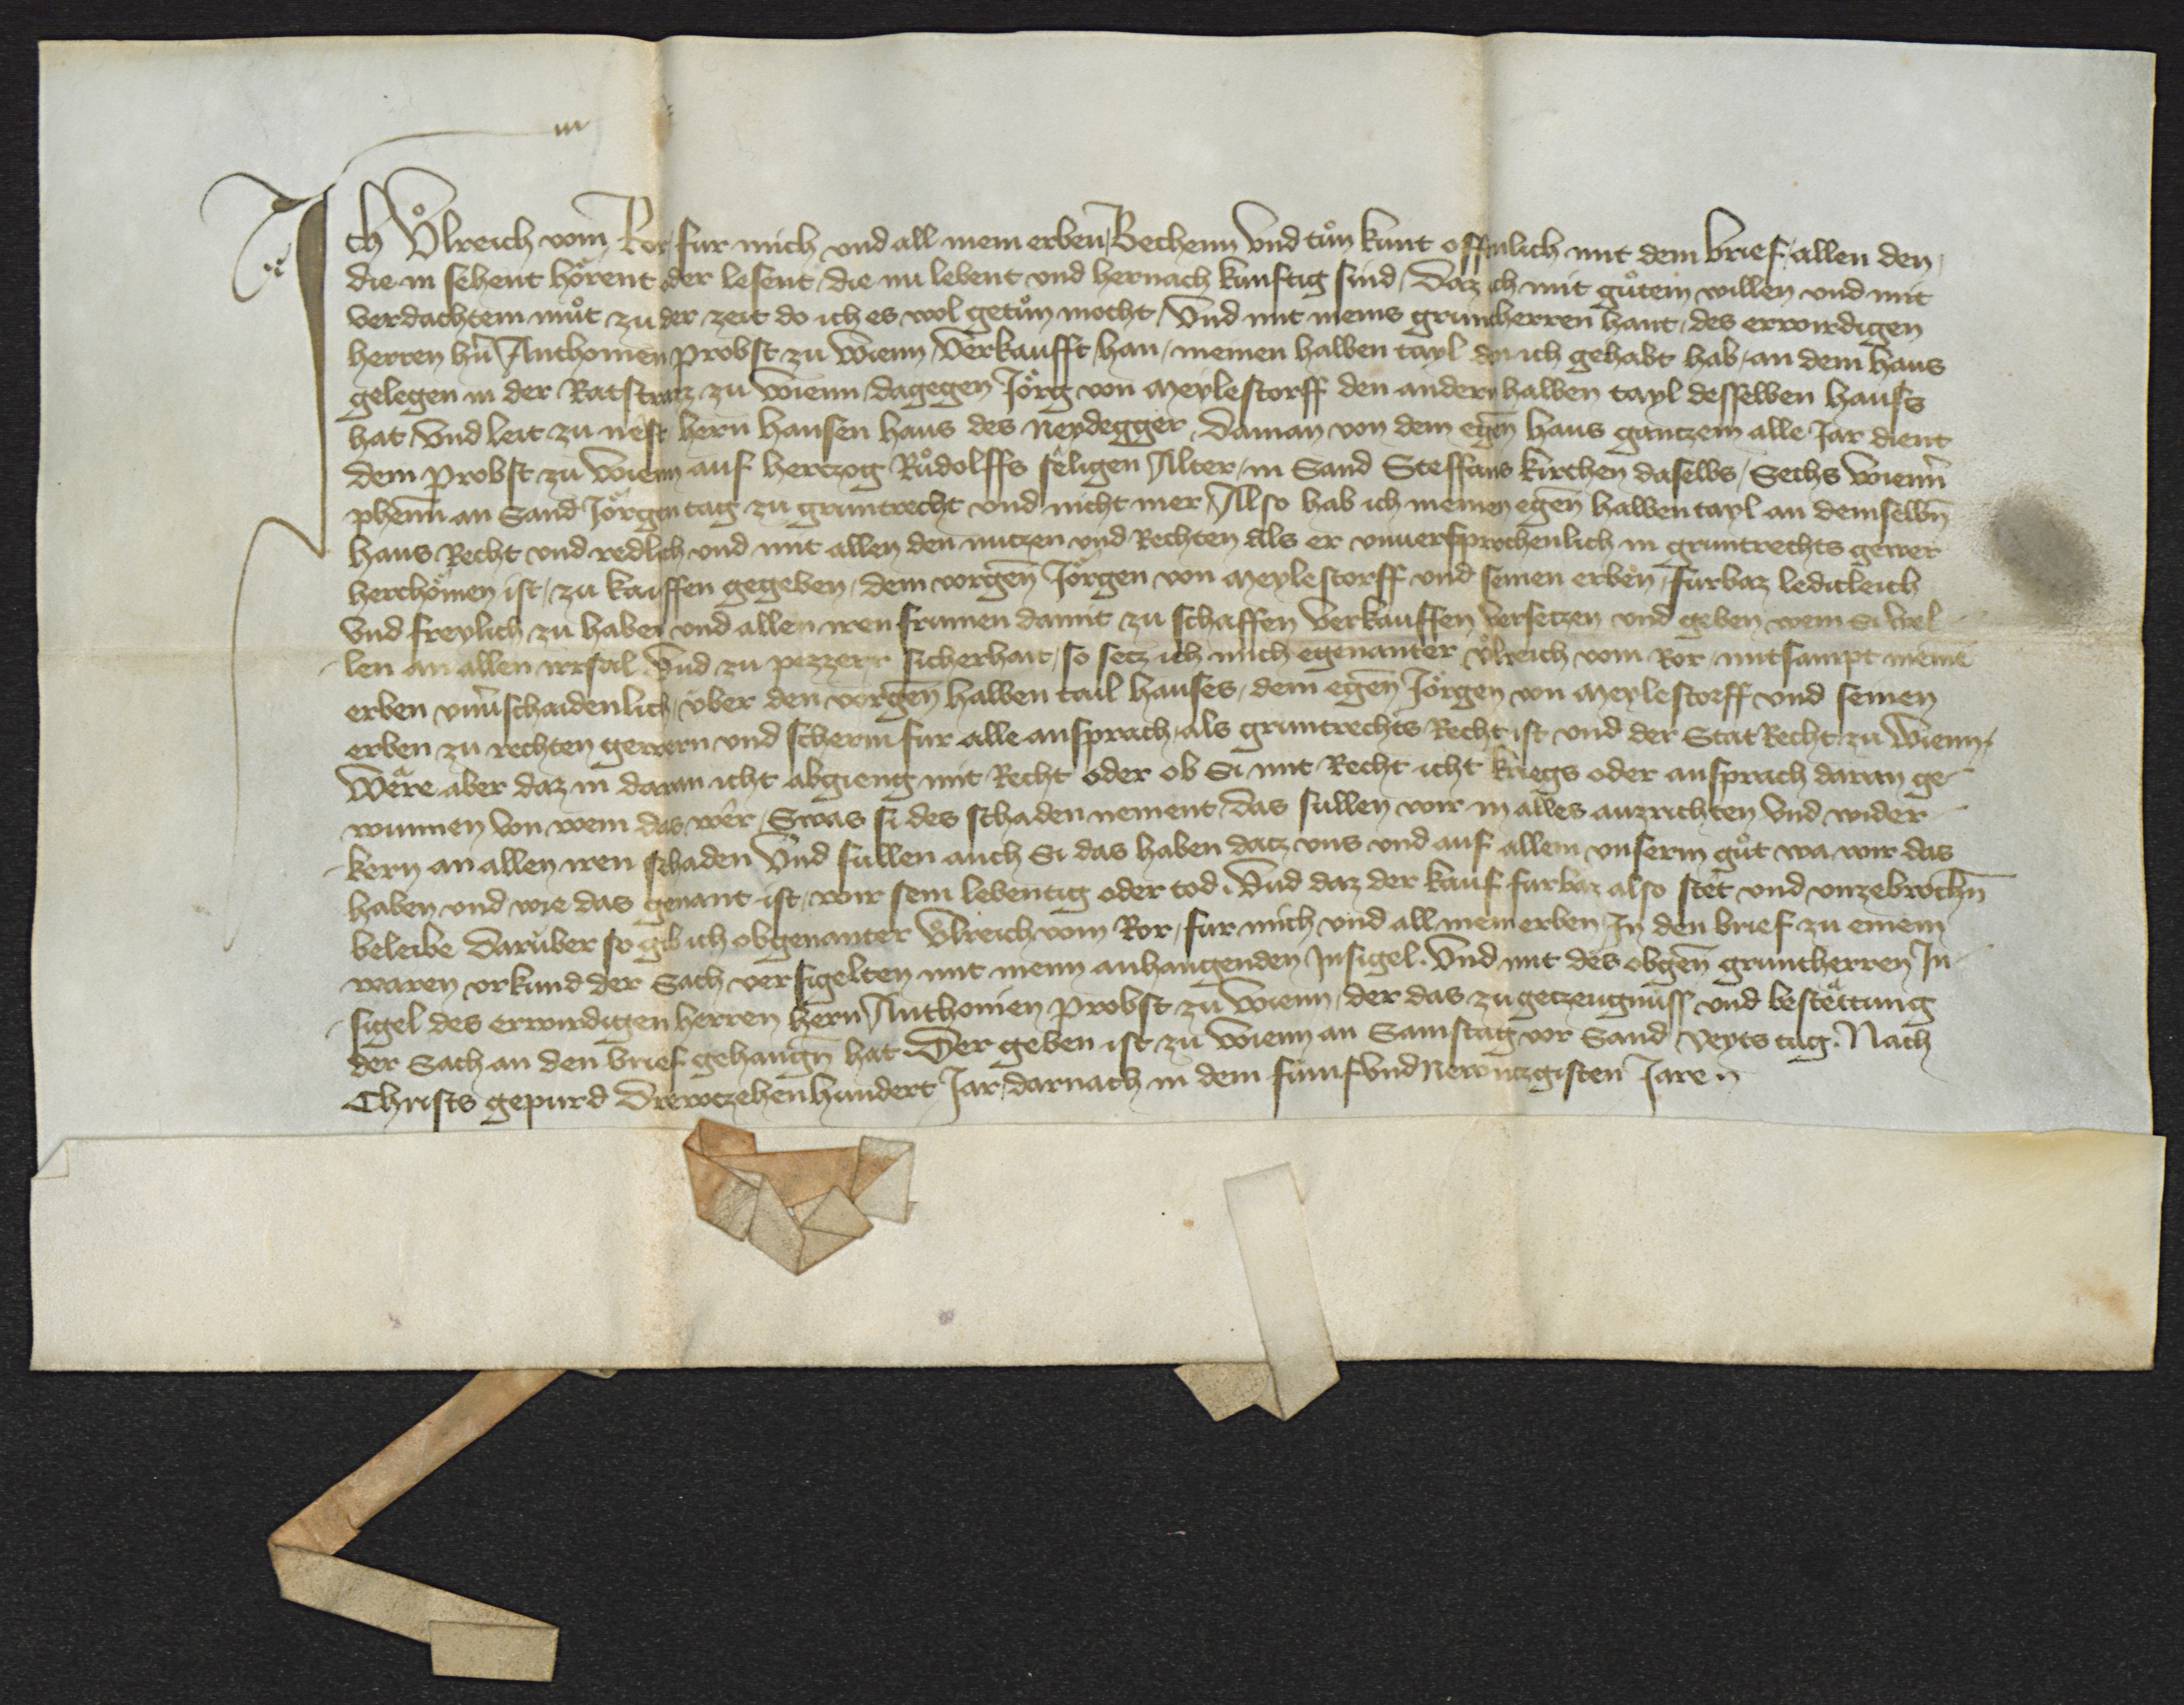 Ich Vͦlreich vom Ror fur mich vnd all mein erben Bechenn Vnd tuͦn kunt offenlich mit dem brief allen den
die in sehent hoͤrent oder lesent die nu lebent vnd hernach kunftig sind Daz ich mit guͦtem willen vnd mit
verdachtem muͦt zu der zeit do ich es wol getuͦn mocht Vnd mit meins gruntherren hant des erwirdigen
herren hern̄ Anthonien Probst zu Wienn Verkaufft han meinen halben tayl den ich gehabt hab an dem haus
gelegen in der Ratstrazz zu Wienn dagegen Joͤrg von Meylestorff den andern halben tayl desselben hauss
hat Vnd leit zu nest hern̄ Hansen haus des Neydegger Daman von dem egen̄ haus gantzem alle Jar dient
dem Probst zu Wienn auf Hertzog Ruͦdolffs seligen Alter in Sand Steffans kirchen daselbs Sechs Wienn̄
phenn̄ an Sand Joͤrgen tag zu gruntrecht vnd nicht mer Also hab ich meinen egen̄ halben tayl an demselbn̄
haus Recht vnd redlich vnd mit allen den nutzen vnd Rechten als er vnuersprochenlich in gruntrechts gewer
herchoͤmen ist zu kauffen gegeben dem vorgen̄ Joͤrgen von Meylestorff vnd seinen erben furbaz ledicleich
Vnd freylich zu haben vnd allen iren frumen damit zu schaffen Verkauffen Versetzen vnd geben wem Si wel
len an allen irrsal Vnd zu pezzerr sicherhait so setz ich mich egenanter Vͦlreich vom Ror mitsampt meinē
erben vnu̇schaidenlich uͤber den vorgen̄ halben tail hauses dem egen̄ Joͤrgen von Meylestorff vnd seinen
erben zu rechten gewern vnd scherm fur alle ansprach als gruntrechts Recht ist vnd der Stat Recht zu Wienn
Weͤre aber daz in daran icht abgieng mit Recht oder ob Si mit Recht icht kriegs oder ansprach daran ge
wunnen Von wem das wer Swas si des schaden nement das sullen wir in alles auzrichten Vnd wider
kern an allen iren schaden Vnd sullen auch Si das haben datz vns vnd auf allem vnserm guͦt wa wir das
haben vnd wie das genant ist wir sein lebentig oder tod Vnd daz der kauf furbaz also stet vnd vnzebrochn̄
beleibe Daruͤber so gib ich obgenanter Vͦlreich vom Ror fur mich vnd all mein erben In den brief zu einem
waren vrkund der Sach versigelten mit meim anhangenden Insigel Vnd mit des obgen̄ gruntherren In
sigel des erwirdigen herren hern̄ Anthonien Probst zu Wienn der das zu getzeugnuͤss vnd bestettung
der Sach an den brief gehangn̄ hat Der geben ist zu Wienn an Samstag vor Sand Veyts tag Nach
Christs gepurd Drewtzehenhundert Jar darnach in dem fumfvndNewntzgisten Jare